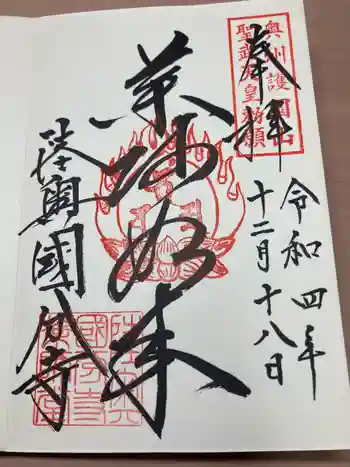 奉拝
奥州護國山
聖武天皇勅願
令和四年
十二月十八日
薬師如来
陸奥國分寺